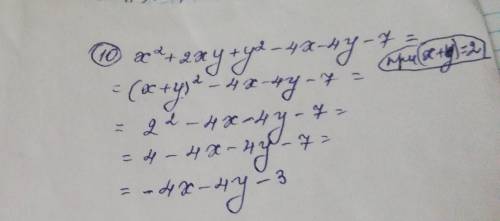 ⑩ x² + 2xy + y² - 4x - 4y - 7 =
при (x+y)=2
= (x+y)² - 4x - 4y - 7 =
= 2² - 4x - 4y - 7 =
= 4 - 4x - 4y - 7 =
= -4x - 4y - 3